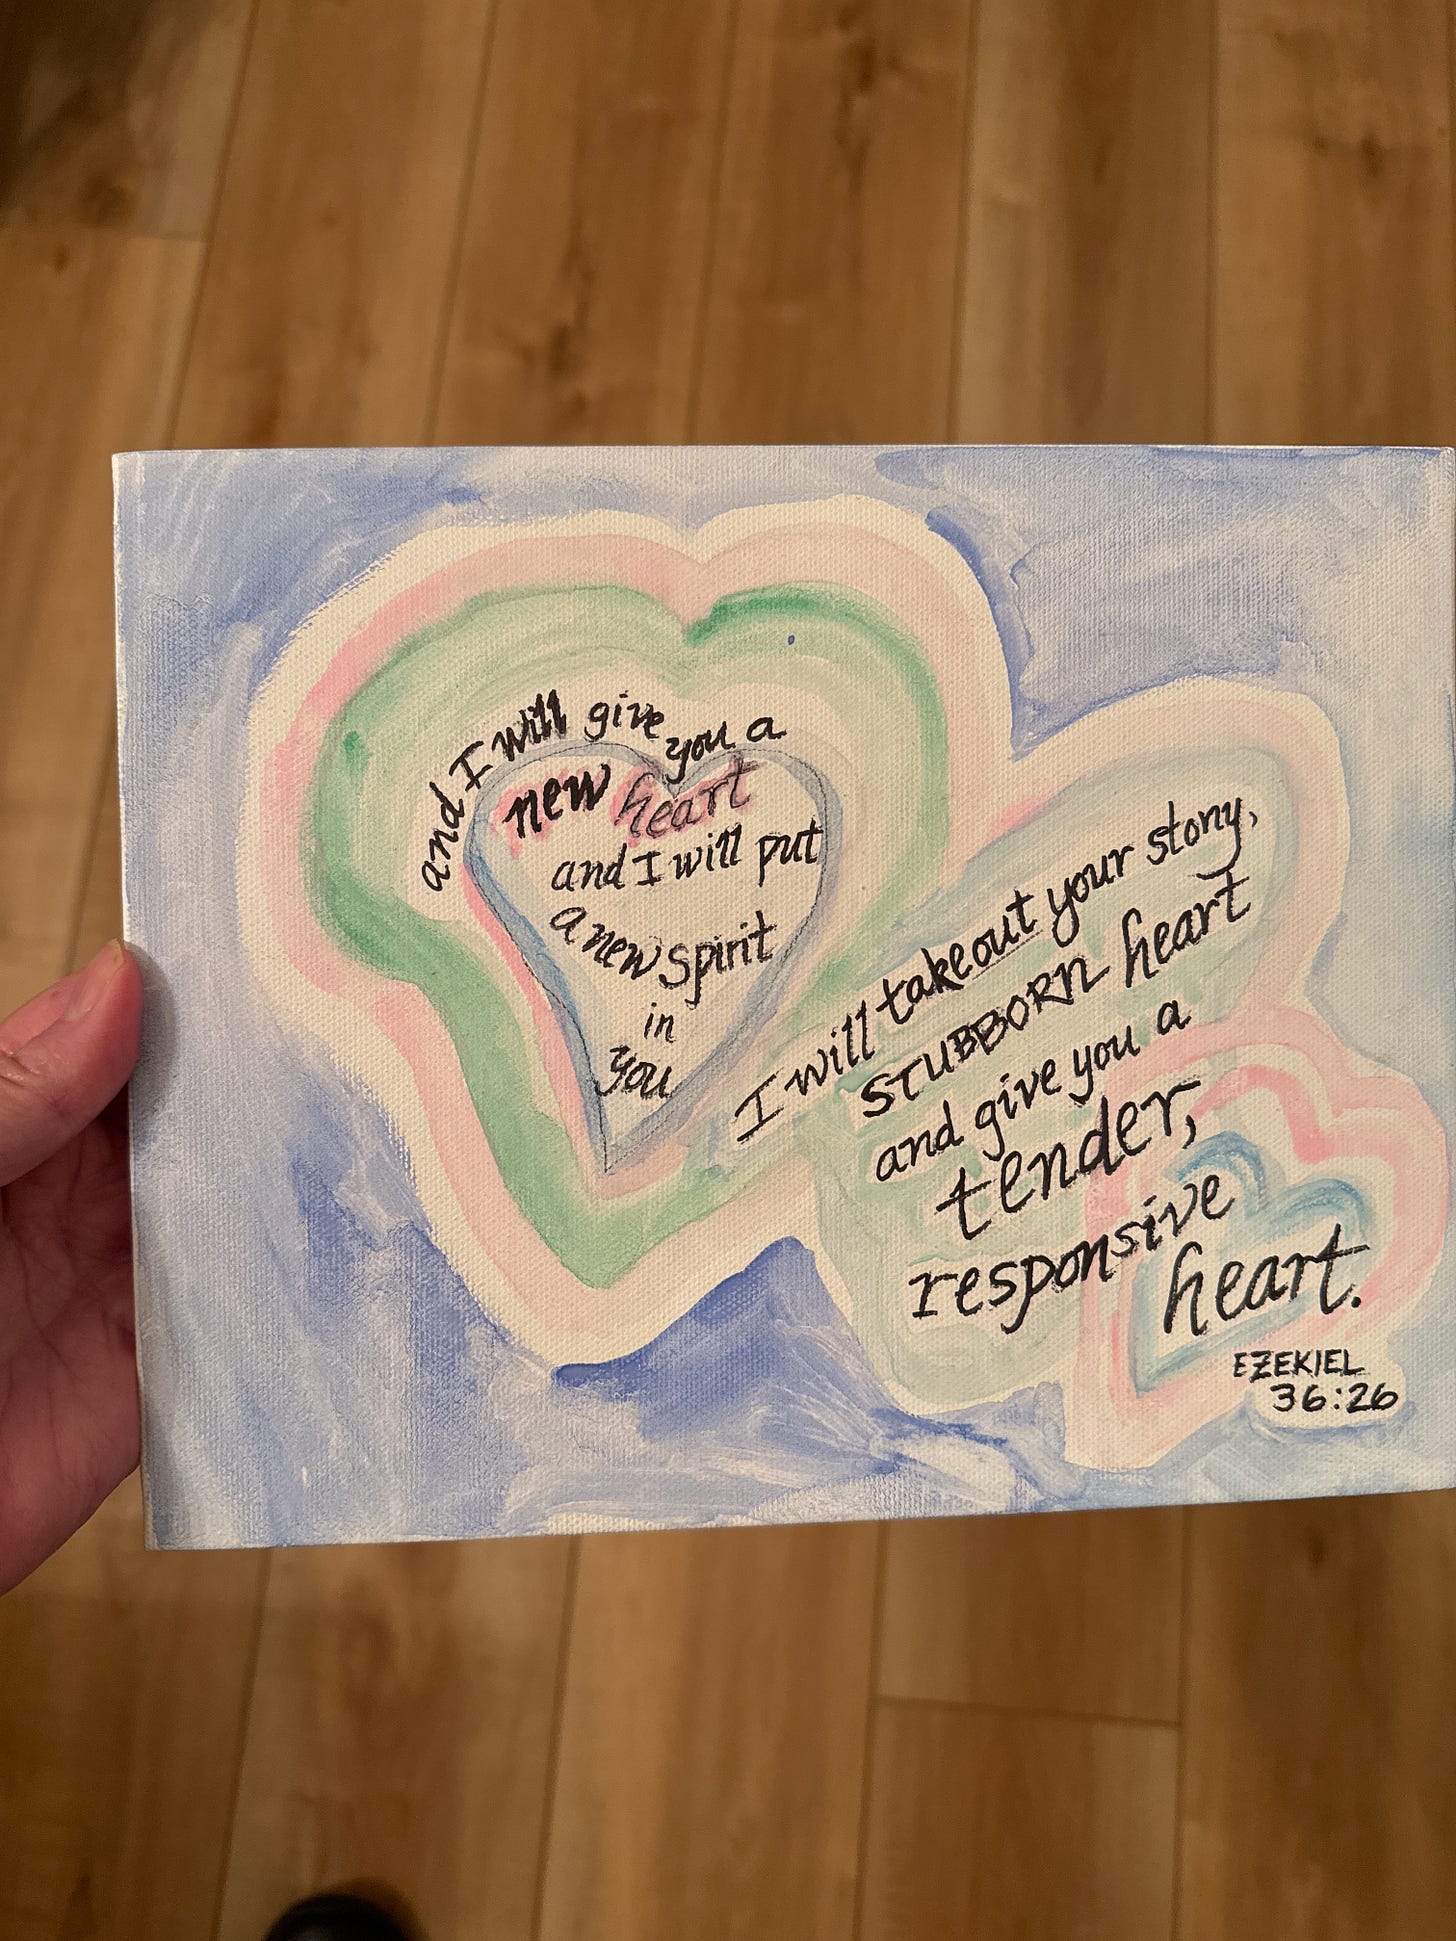 and I will give you a
new heart
and I will put
a new spirit
in
you
I will take out your stony,
STUBBORN heart
and give you a
tender,
responsive
heart.
EZEKIEL
36:26